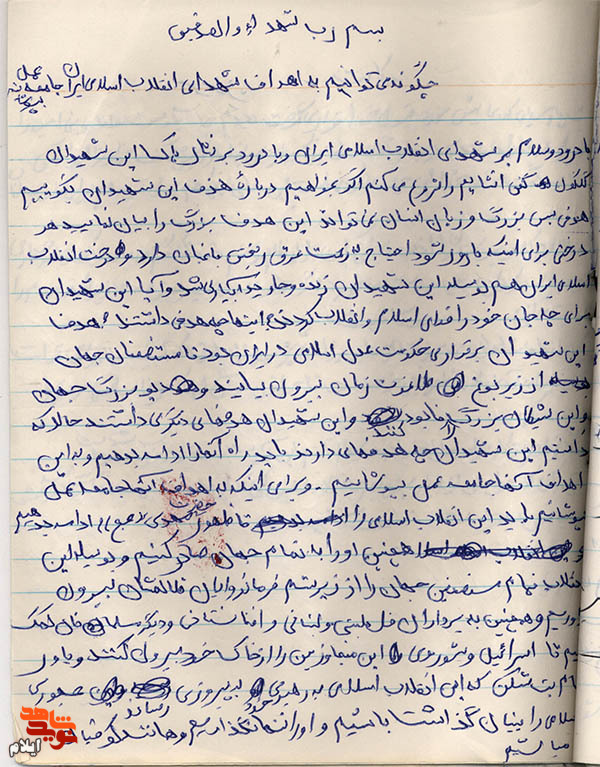 بسم رب شهداء والصدیقین
چگونه می توانیم به اهداف شهدای انقلاب اسلامی ایران جامعه عمل
بپوشانیم
با درود و سلام بر شهدای انقلاب اسلامی ایران و با درود بر نثار پاک این شهیدان
گلگون کفن انشایم را شروع می کنم اگر بخواهیم دربارهٔ هدف این شهیدان بگوییم
هدفی بس بزرگ و زبان انسان نمی تواند این هدف بزرگ را بیان نماید هر
درختی برای اینکه بارور شود احتیاج به زحمت عرق ریختن باغبان دارد و درخت انقلاب
اسلامی ایران هم بوسیله این شهیدان زنده و جاوید آبیاری شد و آیا این شهیدان
برای چه جان خود را فدای اسلام و انقلاب کردند و اینها چه هدفی داشتند؟ هدف
این شهیدان برقراری حکومت عدل اسلامی در ایران بود تا مستضعفان جهان
از زیر یوغ طاغوت زمان بیرون بیایند و دیو بزرگ جهان
و این شیطان بزرگ را نابود کنند و این شهیدان هدفهای دیگری داشتند حالا که
دانستیم این شهیدان چه هدفهای دارند باید راه آنها را ادامه بدهیم و به این
اهداف آنها جامعه عمل بپوشانیم - و برای اینکه به اهداف آنها جامعه عمل
بپوشانیم باید این انقلاب اسلامی را تا ظهور حضرت مهدی (عج) ادامه بدهیم
همچنین او را به تمام جهان صادر کنیم و بوسیله این
انقلاب تمام مستضعفین جهان را از زیر ستم فرمانروایان ظالمشان بیرون
آوریم و همچنین به برادران فلسطینی و لبنانی و افغانستانی و دیگر مسلمانان کمک
کنیم تا اسرائیل و شوروی این متجاوزین را از خاک خود بیرول کنند و یاور
امام بت شکن که این انقلاب اسلامی به رهبری خود به پیروزی رساند جمهوری
اسلامی را بنیان گذاشت باشیم و او را تنها نگذاریم و همانند کوفیان
نباشیم
شاهد
نوید
ایلام